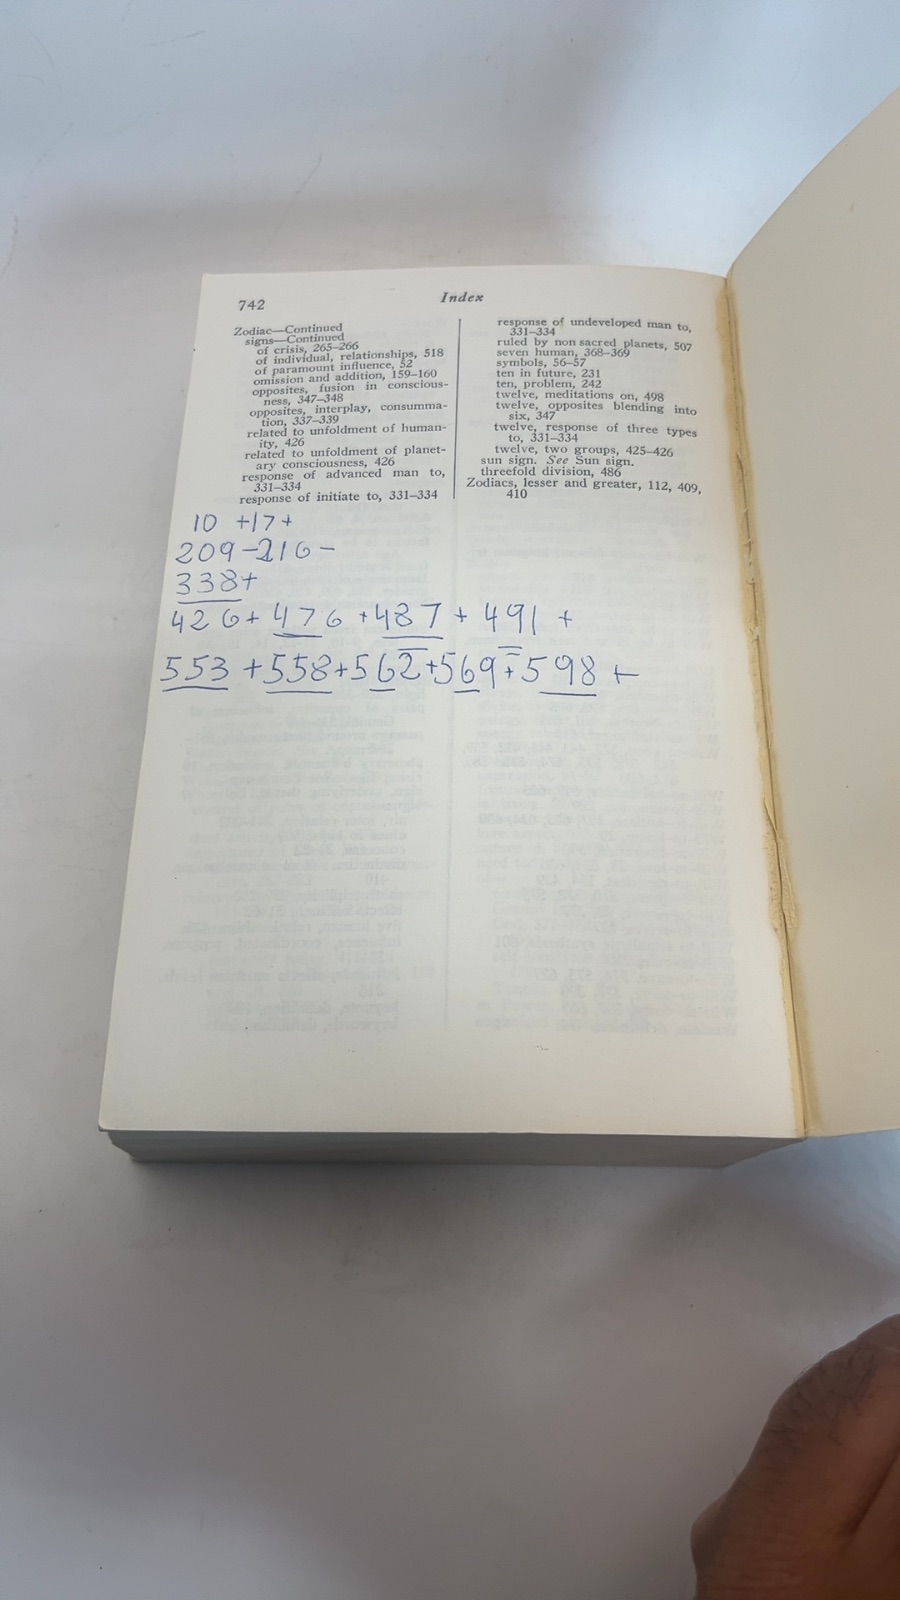 742
Index
Zodiac—Continued
signs—Continued
of crisis, 265–266
of individual, relationships, 518
of paramount influence, 52
omission and addition, 159–160
opposites, fusion in conscious-
ness, 347–348
opposites, interplay, consumma-
tion, 337–339
related to unfoldment of human-
ity, 426
related to unfoldment of planet-
ary consciousness, 426
response of advanced man to,
331–334
response of initiate to, 331–334
response of undeveloped man to,
331–334
ruled by non sacred planets, 507
seven human, 368–369
symbols, 56–57
ten in future, 231
ten, problem, 242
twelve, meditations on, 498
twelve, opposites blending into
six, 347
twelve, response of three types
to, 331–334
twelve, two groups, 425–426
sun sign. See Sun sign.
threefold division, 486
Zodiacs, lesser and greater, 112, 409,
410
10 +17+
209-216-
338+
426+476+487+491+
553+558+562+569+598+